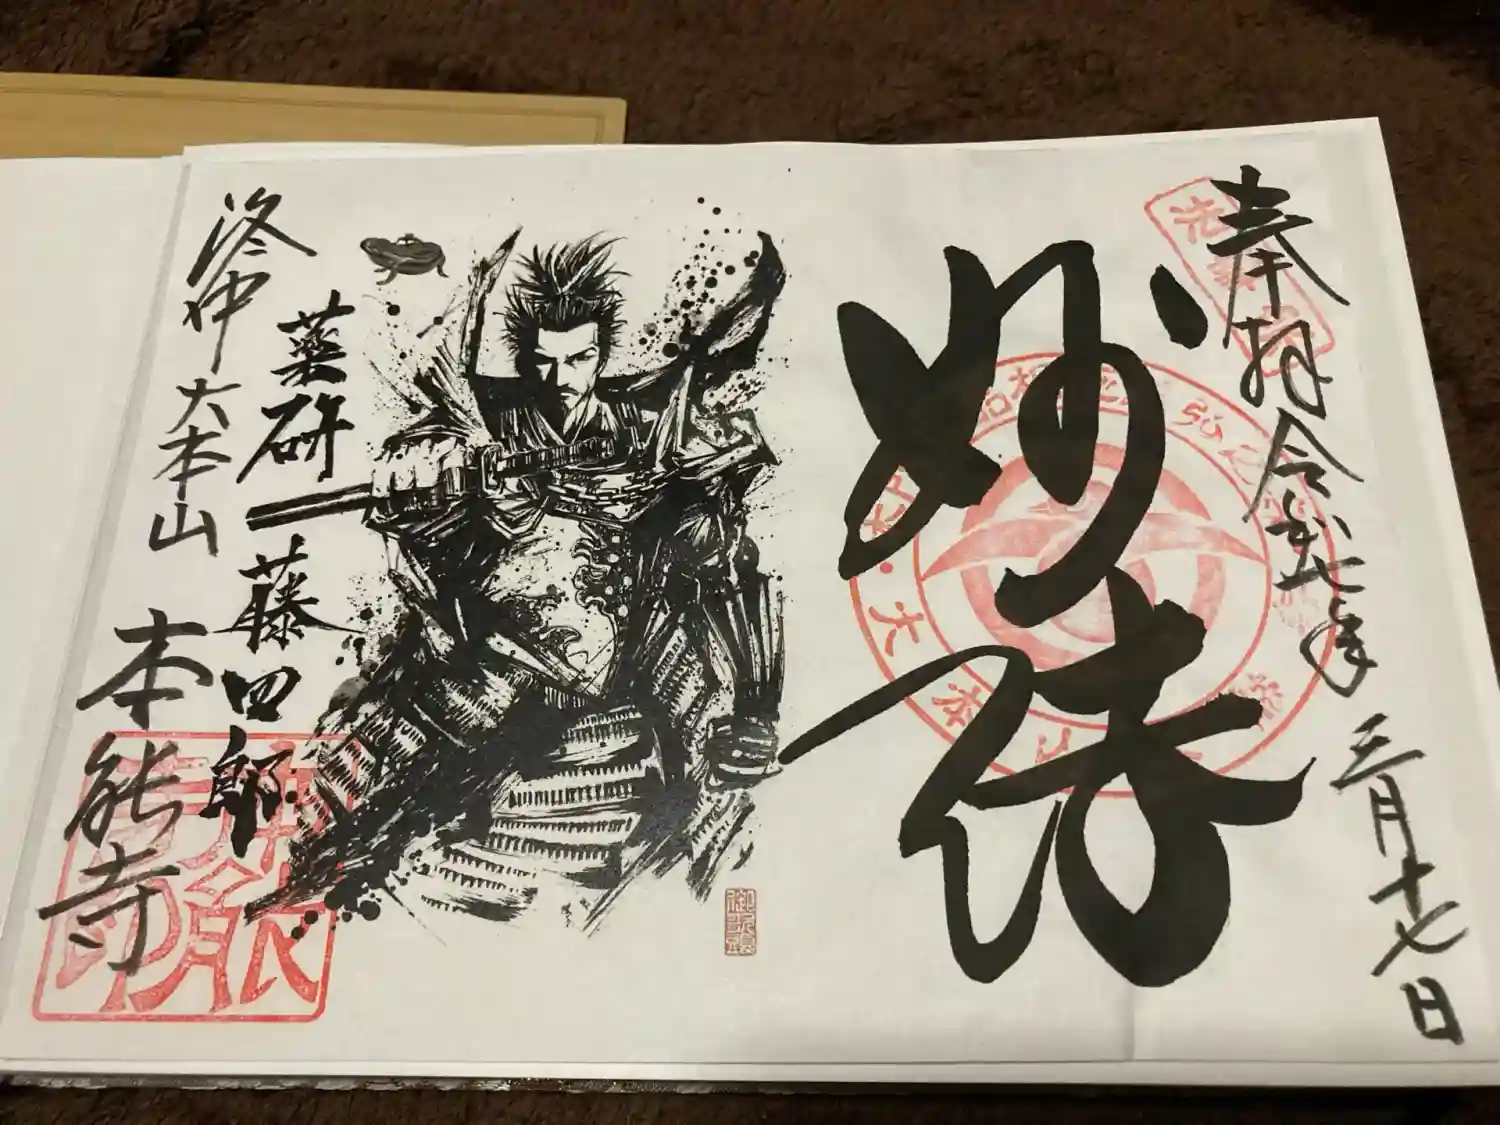 奉拝 令和七年 三月十七日
妙法
薬研 藤四郎
洛中 大本山 本能寺